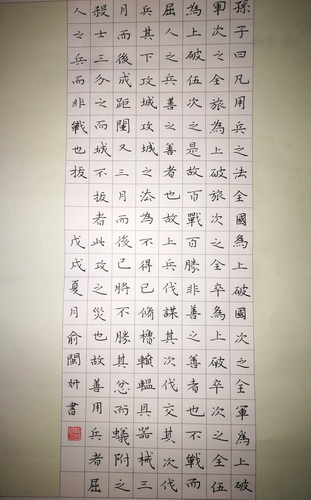 孫子曰凡用兵之法全國為上破國次之全軍為上破
軍次之全旅為上破旅次之全卒為上破卒次之全伍
為上破伍次之是故百戰百勝非善之善者也不戰而
屈人之兵善之善者也故上兵伐謀其次伐交其次伐
兵其下攻城攻城之法為不得已脩櫓轒轀具器械三
月而後成距闉又三月而後已將不勝其忿而蟻附之
殺士三分之而城不拔者此攻之災也故善用兵者屈
人之兵而非戰也拔
戊戌夏月俞閩妍書